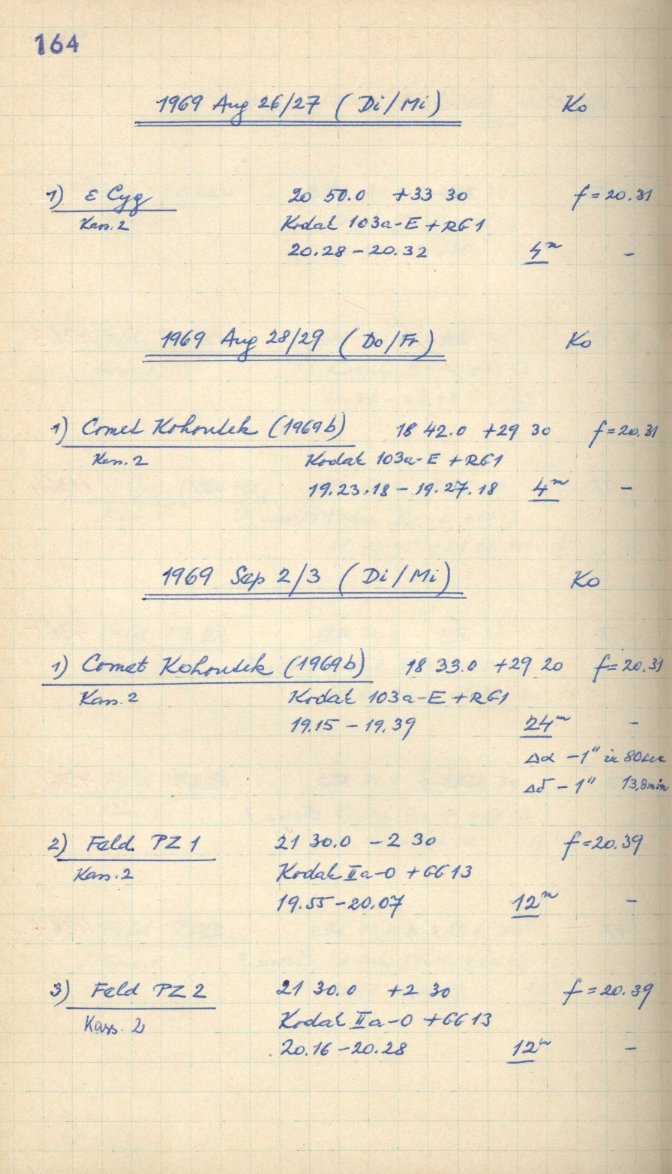 164
1969 Aug 26/27 (Di/Mi) Ko
1) ε Cyg 20 50.0 +33 30 f=20.31
Kass. 2 Kodak 103a-E+RG1
20.28-20.32 4m -
1969 Aug 28/29 (Do/Fr) Ko
1) Comet Kohoutek (1969b) 18 42.0 +29 30 f=20.31
Kass. 2 Kodak 103a-E+RG1
19.23.18-19.27.18 4m -
1969 Sep 2/3 (Di/Mi) Ko
1) Comet Kohoutek (1969b) 18 33.0 +29 20 f=20.31
Kass. 2 Kodak 103a-E+RG1
19.15-19.39 24m -
Δα -1" in 80sec
Δδ -1" 13,8min
2) Feld PZ 1 21 30.0 -2 30 f=20.39
Kass. 2 Kodak IIa-O +GG13
19.55-20.07 12m -
3) Feld PZ 2 21 30.0 +2 30 f=20.39
Kass. 2 Kodak IIa-O +GG13
20.16-20.28 12m -